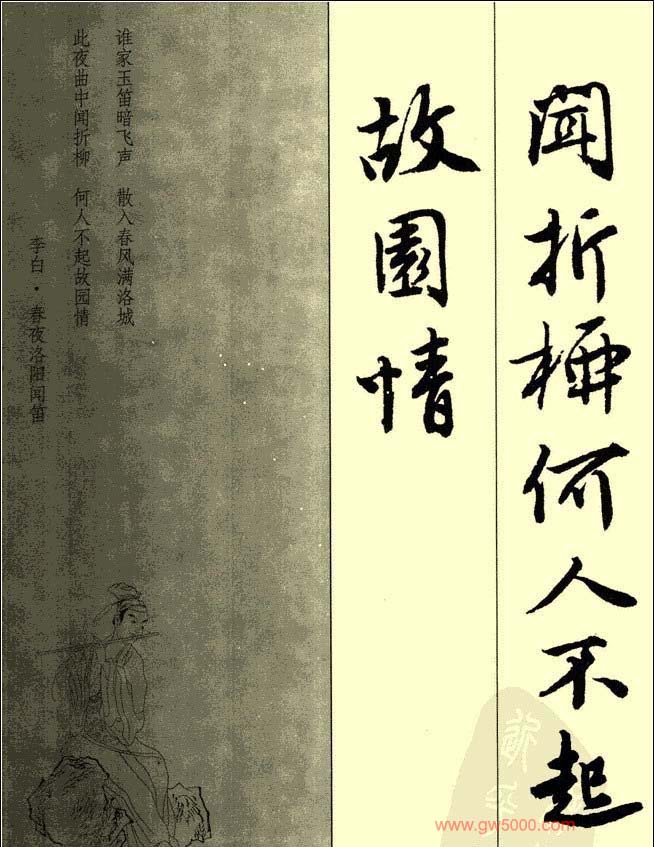 闻折柳何人不起
故園情
谁家玉笛暗飞声 散入春风满洛城
此夜曲中闻折柳 何人不起故园情
李白·春夜洛阳闻笛
www.gw5000.com